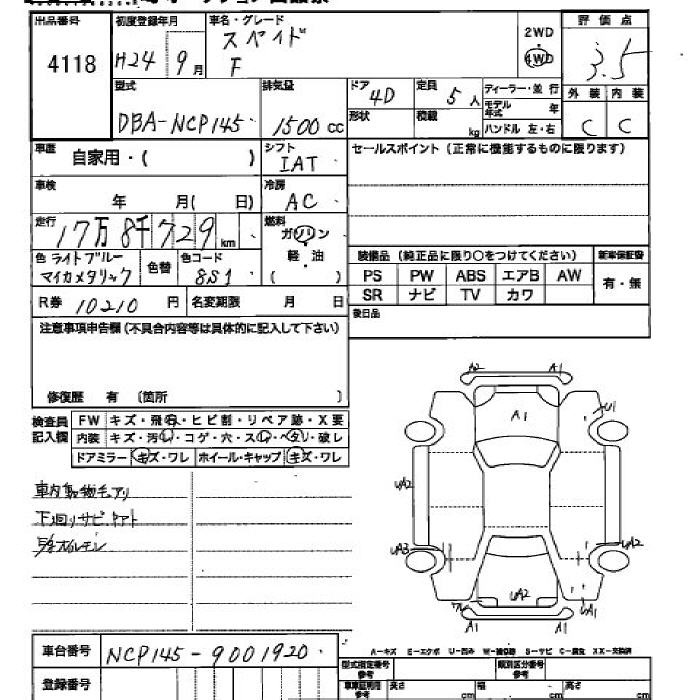 出品番号
4118
初度登録年月
H24 9月
車名・グレード
スペイド
F
2WD
4WD
評価点
3.5
外装 内装
C C
型式
DBA-NCP145
排気量
1500 cc
ドア
4D
形状
定員
5人
積載
kg
ディーラー・並行
モデル年式 年
ハンドル 左・右
車歴
自家用・( )
シフト
IAT
セールスポイント(正常に機能するものに限ります)
車検
年 月( 日)
冷房
AC
走行
17万8千729km
燃料
ガソリン
軽・油
( )
色 ライトブルー
マイカメタリック
色替
色コード
8S1
装備品(純正品に限り○をつけてください)
新車保証書
PS PW ABS エアB AW
SR ナビ TV カワ
有・無
R券 10210 円
名変期限 月 日
後日品
注意事項申告欄(不具合内容等は具体的に記入して下さい)
修復歴 有 〔箇所 〕
検査員
記入欄
FW キズ・飛石・ヒビ割・リペア跡・X要
内装 キズ・汚レ・コゲ・穴・スレ・ヘタリ・破レ
ドアミラー キズ・ワレ ホイール・キャップ キズ・ワレ
車内動物チアリ
下回りサビ
A2 A1
A1
U1
UA2
UA3
UA2
UA2
UA1
A1 A1
車台番号
NCP145-9001920
登録番号
A-キズ E-エクボ U-凹み W-補修跡 S-サビ C-腐食 XX-交換済
型式指定番号
参考
類別区分番号
参考
車車証利用
参考
長さ cm
幅 cm
高さ cm